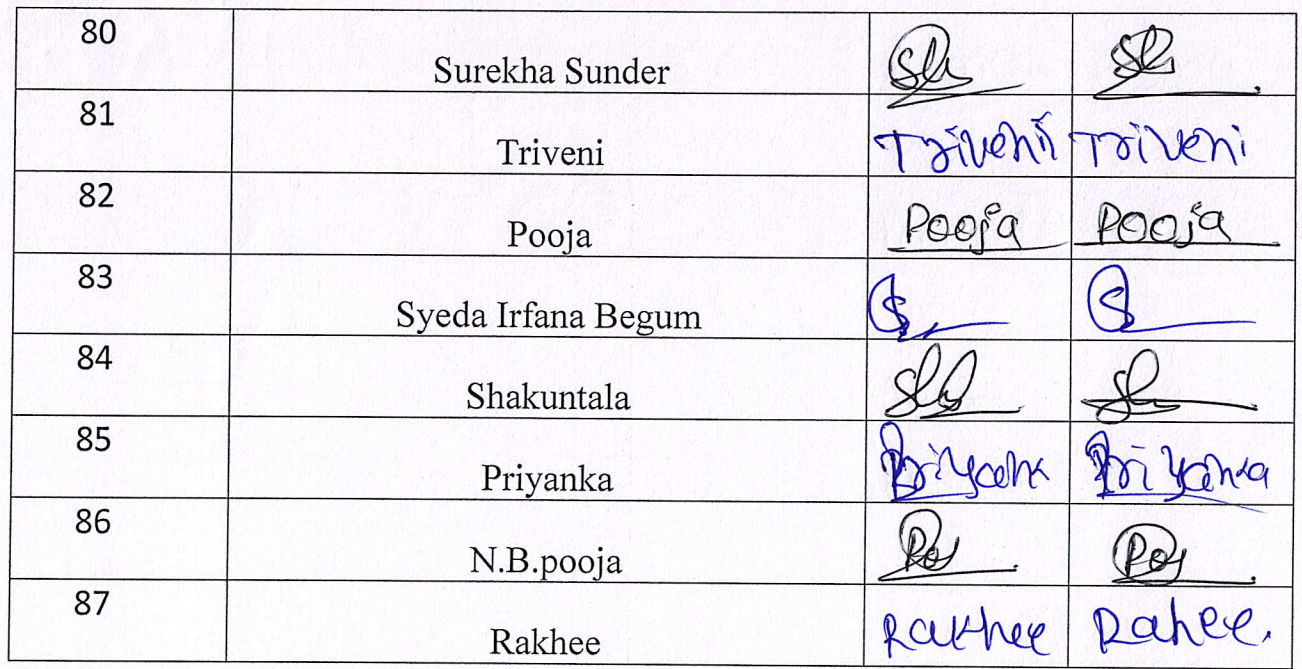 80 Surekha Sunder
81 Triveni Triveni Triveni
82 Pooja Pooja Pooja
83 Syeda Irfana Begum
84 Shakuntala
85 Priyanka Priyank Priyanka
86 N.B.pooja Poj Poj
87 Rakhee Rakhee Rahee.